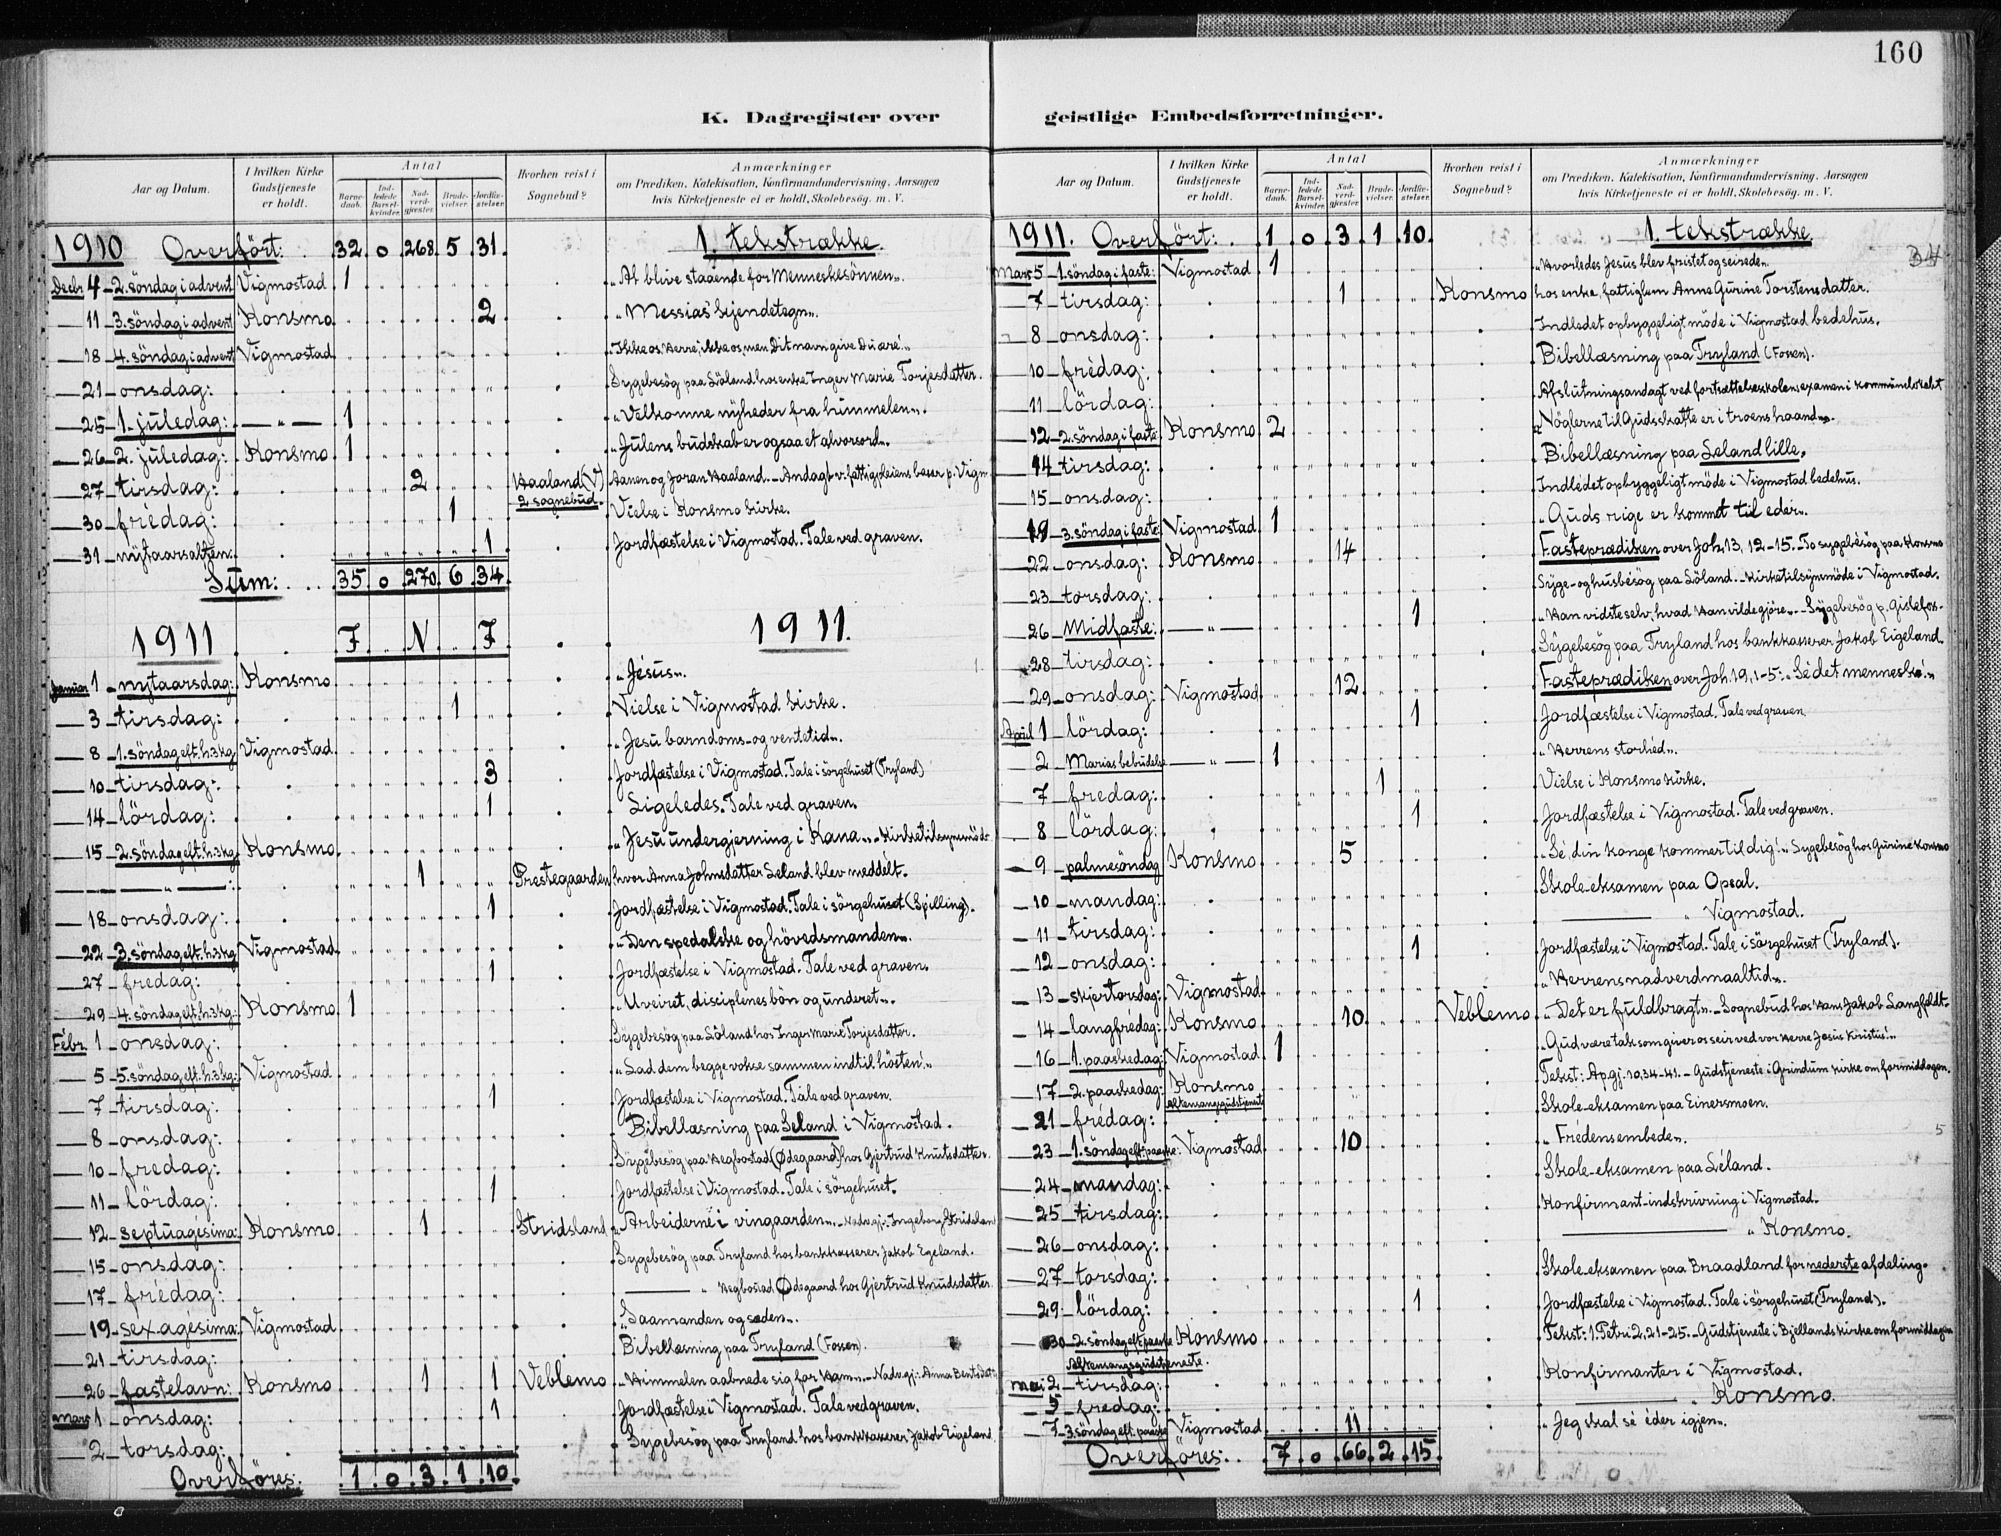 160
K. Dagregister over geistlige Embedsforretninger.
Aar og Datum. I hvilken Kirke Gudstjeneste er holdt. Antal Barnedaab. Indledede Barselkvinder. Nadverdgjester. Brudevielser. Jordfæstelser. Hvorhen reist i Sognebud? Anmærkninger om Prædiken, Katekisation, Konfirmandundervisning, Aarsagen hvis Kirketjeneste ei er holdt, Skolebesøg. m. V.
1910 Overfört: 32 0 268 5 31 1. tekstrække.
Decbr 4 – 2. söndag i advent Vigmostad 1 „At blive staaende for Menneskesönnen„.
11 – 3. söndag i advent Konsmo 2 „Messias' kjendetegn„.
18 – 4. söndag i advent Vigmostad „Ikke os Herre, ikke os, men Dit navn give Du ære!„
21 – onsdag: Sygebesög paa Löland hos enke Inger Marie Torjesdatter.
25 – 1. juledag: — „ — 1 „Velkomne nyheder fra himmelen„.
26 – 2. juledag: Konsmo 1 „Julens budskab er ogsaa et alvorsord„.
27 – tirsdag: 2 Haaland (V) 2 sognebud. Aanen og Joran Haaland. – Andagt v. fattigpleiens baser p. Vigm.
30 – frédag: 1 Vielse i Konsmo kirke.
31 – nytaarsaften: 1 Jordfæstelse i Vigmostad. Tale ved graven.
Sum: 35 0 270 6 34
1911 F N F 1911.
Januar 1 – nytaarsdag: Konsmo „Jésus„.
3 – tirsdag: 1 Vielse i Vigmostad kirke.
8 – 1. söndag eft. h. 3 kg. Vigmostad „Jesu barndoms- og ventetid„.
10 – tirsdag: 3 Jordfæstelse i Vigmostad. Tale i sörgehuset (Tryland)
14 – lördag: 1 Ligeledes. Tale ved graven.
15 – 2. söndag eft. h. 3 kg. Konsmo „Jesu undergjerning i Kana„. – Kirketilsynsmöde
— „ —: 1 Prestegaarden hvor Anna Johnsdatter Leland blev meddelt.
18 – onsdag: 1 Jordfæstelse i Vigmostad. Tale i sörgehuset (Spilling).
22 – 3. söndag eft. h. 3 kg Vigmostad „Den spedalske og hövedsmanden„.
27 – fredag: 1 Jordfæstelse i Vigmostad. Tale ved graven.
29 – 4. söndag eft. h. 3 kg: Konsmo 1 „Uveiret, disciplenes bön og underet„.
Febr. 1 – onsdag: Sygebesög paa Löland hos Inger Marie Torjesdatter.
5 – 5. söndag eft. h. 3 kg: Vigmostad „Lad dem begge vokse sammen indtil hösten!„
7 – tirsdag: 1 Jordfæstelse i Vigmostad. Tale ved graven.
8 – onsdag: Bibellæsning paa Leland i Vigmostad.
10 – fredag: Sygebesög paa Hegbostad (Ødegaard) hos Gjertrud Knutsdatter.
11 – lördag: 1 Jordfæstelse i Vigmostad. Tale i sörgehuset.
12 – septuagesima: Konsmo 1 Stridsland „Arbeiderne i vingaarden„. – Nadvgj: Ingeborg Stridsland
15 – onsdag: Sygebesög paa Tryland hos bankkasserer Jakob Egeland.
17 – frédag: — „ Hegbostad Ødegaard hos Gjertrud Knudsdatter.
19 – sexagesima: Vigmostad „Saamanden og sæden„.
21 – tirsdag: Bibellæsning paa Tryland (Fossen).
26 – fastelavn: Konsmo 1 1 Veblemo „Himmelen aabnede sig for Ham„. – Nadvgj: Anna Bentsdatt.
Mars 1 – onsdag: 1 Jordfæstelse i Vigmostad. Tale ved graven.
2 – torsdag: Sygebesög paa Tryland hos bankkasserer Jakob Eigeland
Overföres: 1 0 3 1 10
Aar og Datum. I hvilken Kirke Gudstjeneste er holdt. Antal Barnedaab. Indledede Barselkvinder. Nadverdgjester. Brudevielser. Jordfæstelser. Hvorhen reist i Sognebud? Anmærkninger om Prædiken, Katekisation, Konfirmandundervisning, Aarsagen hvis Kirketjeneste ei er holdt, Skolebesøg. m. V.
1911. Overfört: 1 0 3 1 10 1. tekstrække
Mars 5 – 1. söndag i faste: Vigmostad 1 „Hvorledes Jesus blev fristet og seirede„. 34
7 – tirsdag: 1 Konsmo hos enke, fattiglem Anne Gurine Torstensdatter.
8 – onsdag: Indledet opbyggeligt möde i Vigmostad bedehus.
10 – frédag: Bibellæsning paa Tryland (Fossen).
11 – lördag: Afslutningsandagt ved fortsættelsesskolens examen i kommunelokalet
12 – 2. söndag i faste: Konsmo 2 „Nöglerne til Guds skatte er i troens haand„.
14 – tirsdag: Bibellæsning paa Leland lille.
15 – onsdag: Indledet opbyggeligt möde i Vigmostad bedehus.
19 – 3. söndag i faste: Vigmostad 1 „Guds rige er kommet til eder„.
22 – onsdag: Konsmo 14 Fasteprædiken over Joh. 13, 12–15. – To sygebesög paa Konsmo
23 – torsdag: Syge- og husbesög paa Löland. – Kirketilsynsmöde i Vigmostad.
26 – Midfaste: — „ — 1 „Han vidste selv, hvad Han vilde gjöre„. – Sygebesög p. Gislefos.
28 – tirsdag: Sygebesög paa Tryland hos bankkasserer Jakob Eigeland.
29 – onsdag: Vigmostad 12 Fasteprædiken over Joh. 19, 1–5: „Se det menneske!„
April 1 – lördag: 1 Jordfæstelse i Vigmostad. Tale ved graven.
2 – Marias bebudelse — „ — 1 „Herrens storhed„.
7 – fredag: 1 Vielse i Konsmo kirke.
8 – lördag: 1 Jordfæstelse i Vigmostad. Tale ved graven.
9 – palmesöndag Konsmo 5 „Sé, din konge kommer til dig!„ Sygebesög hos Gurine Konsmo
10 – mandag: Skole-eksamen paa Opsal.
11 – tirsdag: — „ Vigmostad.
12 – onsdag: 1 Jordfæstelse i Vigmostad. Tale i sörgehuset (Tryland).
13 – skjertorsdag: Vigmostad „Herrens nadverdmaaltid„.
14 – langfrédag: Konsmo 10 Veblemo „Det er fuldbragt„. – Sognebud hos Hans Jakob Langfeldt.
16 – 1. paaskedag: Vigmostad 1 „Gud være tak som giver os seir ved vor Herre Jesus Kristus!„
17 – 2. paaskedag: Konsmo Aftensangsgudstjeneste Tekst: Ap.gj. 10, 34–41. – Gudstjeneste i Grindum kirke om formiddagen.
21 – frédag: Skole-eksamen paa Einersmoen.
23 – 1. söndag eft. paaske: Vigmostad 10 „Frédens embede„. 5
24 – mandag: Skole-eksamen paa Léland.
25 – tirsdag: Konfirmant-indskrivning i Vigmostad.
26 – onsdag: — „ Konsmo.
27 – torsdag: Skole-eksamen paa Braadland for nederste afdeling.
29 – lördag: 1 Jordfæstelse i Vigmostad. Tale i sörgehuset (Tryland).
30 – 2. söndag eft. paaske Konsmo Aftensangsgudstjeneste. Tekst: 1 Petri 2, 21–25. – Gudstjeneste i Bjellands kirke om formiddagen
mai 2 – tirsdag: Konfirmanter i Vigmostad.
5 – fredag: — „ Konsmo.
7 – 3. söndag eft. paaske Vigmostad 11 „Jeg skal sé eder igjen„.
Overföres: 7 0 66 2 15